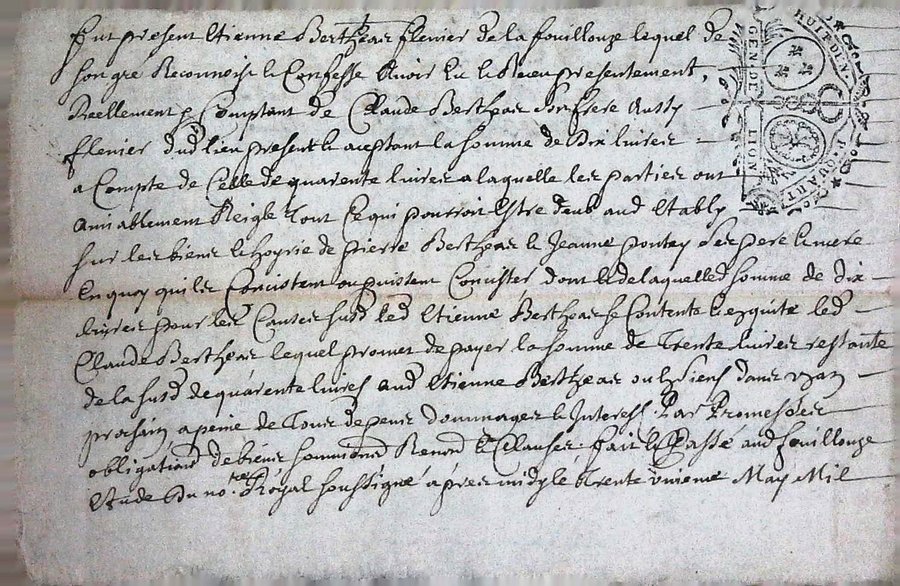 fut présent Etienne Berthear flenier de la fouillouze lequel de
son gré Reconnoist & Confesse Avoir Eu & Receu presentement,
Reellement & Comptant de Claude Berthear son frere Aussy
flenier dud lieu present & aceptant la somme de Dix livres
a Compte de Celle de quarente livres a laquelle les parties ont
Amiablement Reigle Tout Ce qui pourroit Estre deub aud Etably
sur les biens & hoyrie de pierre Berthear & Jeanne pontey Ses pere & mere
En quoy quils Concistent ou puissent Concister dont & de laquelled somme de dix
livres pour les Causes susd led Etienne Berthear se Contente & en quite led
Claude Berthear lequel promet de payer la somme de Trente livres restante
de la susd de quarente livres aud Etienne Berthear ou es siens dans ung an
prochain a peine de Tous depens dommages & Interests Par Promesses
obligations de biens soumions Renons & Clauses. fait & Passé aud fouillouze
Etude du no.re Royal soussigné apres midy le Trente unieme May Mil
GENDE LION
HUIT DEN.